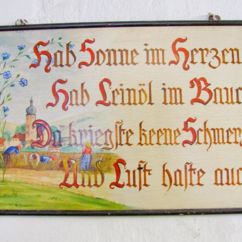 Hab Sonne im Herzen
Hab Leinöl im Bauc
Du kriegste keene Schmer
Und Luft haste auc